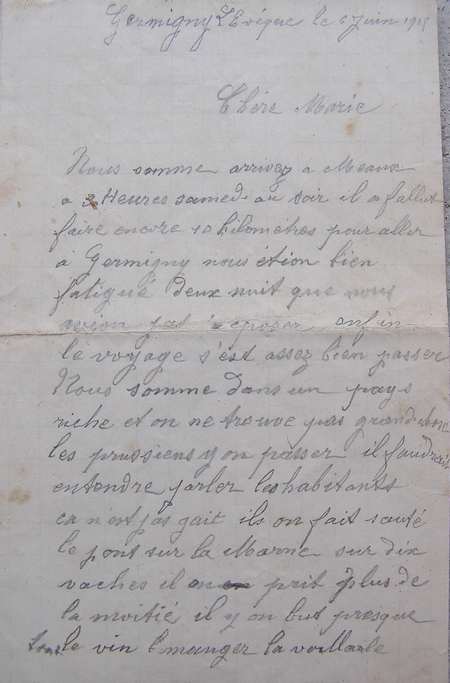 Germigny L'Evêque le 6 Juin 1915
Chère Marie
Nous somme arrivez a Meaux
a 3 Heures samedi au soir il a fallut
faire encore 10 kilomètres pour aller
a Germigny nous étion bien
fatigué deux nuit que nous
avion pas reposer enfin
le voyage s'est assez bien passer
Nous somme dans un pays
riche et on ne trouve pas grand chose
les prussiens y on passer il faudrait
entendre parler les habitants
ca n'est pas gait ils on fait sauté
le pont sur la Marne sur dix
vaches il on prit plus de
la moitié il y on but presque
tous le vin manger la vollaile